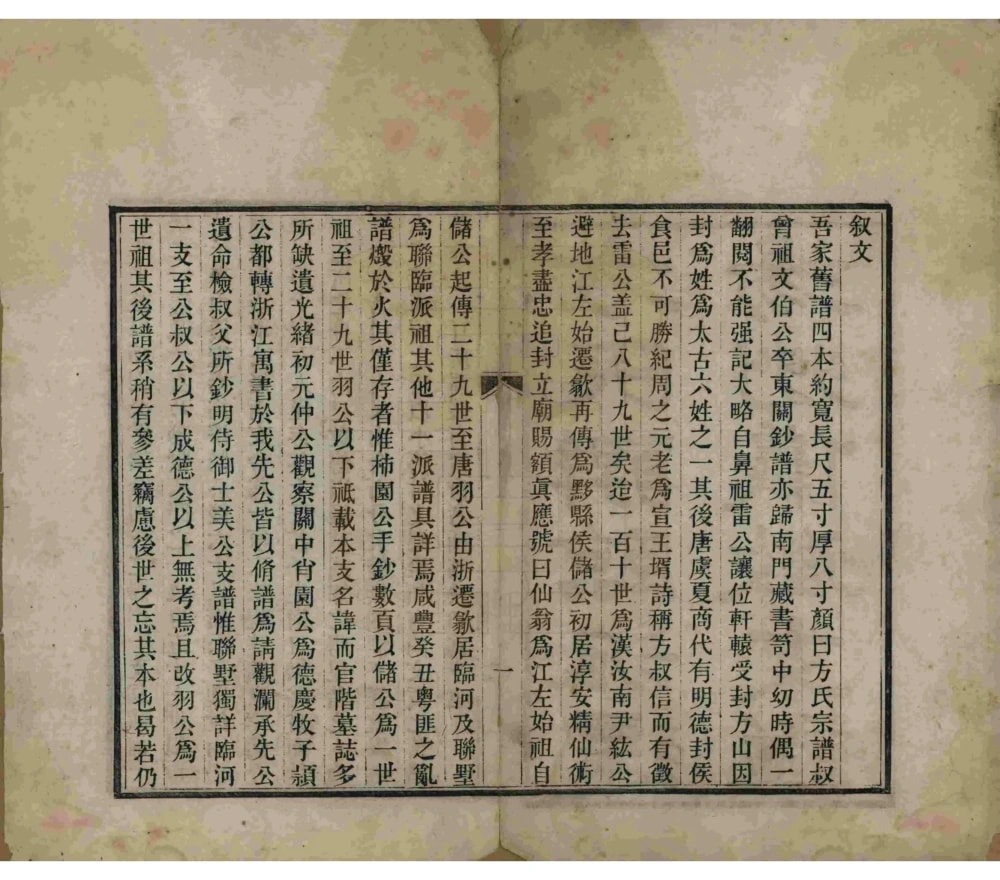 叙文
吾家舊譜四本約寬長尺五寸厚八寸顏曰方氏宗譜叔
曾祖文伯公卒東關鈔譜亦歸南門藏書笥中幼時偶一
翻閱不能强記大略自鼻祖雷公讓位軒轅受封方山因
封爲姓爲太古六姓之一其後唐虞夏商代有明德封侯
食邑不可勝紀周之元老爲宣王壻詩稱方叔信而有徵
去雷公盖已八十九世矣迨一百十世爲漢汝南尹紘公
避地江左始遷歙再傳爲黟縣侯儲公初居淳安精仙術
至孝盡忠追封立廟賜額眞應號曰仙翁爲江左始祖自
一
儲公起傳二十九世至唐羽公由浙遷歙居臨河及聯墅
爲聯臨派祖其他十一派譜具詳焉咸豐癸丑粤匪之亂
譜燬於火其僅存者惟柿園公手鈔數頁以儲公爲一世
祖至二十九世羽公以下祗載本支名諱而官階墓誌多
所缺遺光緒初元仲公觀察關中肖園公爲德慶牧子潁
公都轉浙江寓書於我先公皆以脩譜爲請觀瀾承先公
遺命檢叔父所鈔明侍御士美公支譜惟聯墅獨詳臨河
一支至公叔公以下成德公以上無考焉且改羽公爲一
世祖其後譜系稍有參差竊慮後世之忘其本也曷若仍